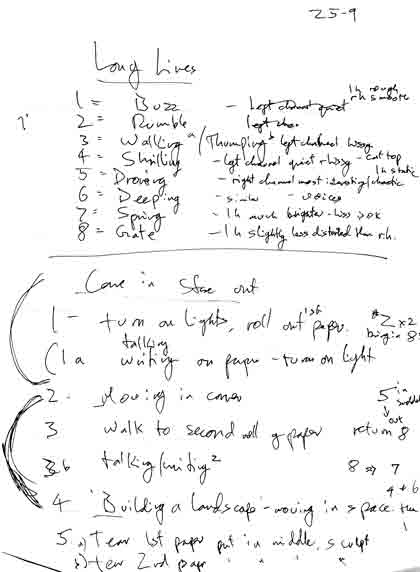 25-9
Long Lives
1 = Buzz - left channel quiet lh rough rh smooth
2 = Rumble left chan
3 = Walking a / Thumping b left channel hissy
4 = Shilling - left channel quiet + hissy - cut top
5 = Droving - right channel most interesting/chaotic lh static
6 = Deeping - similar - voices
7 = Spring - lh much brighter - hiss > OK
8 = Grate - lh slightly less distorted than rh.
Come in Stage out
1 - turn on lights, roll out 1st paper. *2 x 2 bring in 8
(1a talking writing on paper - turn on light
2. Moving in corner 5 in middle
3 walk to second roll of paper return 8 out
3b talking/writing 2 8 => 7
4 Building a landscape - moving in space 4 + 6
5. a) Tear 1st paper put in middle, sculpt
b) tear 2nd paper " " "